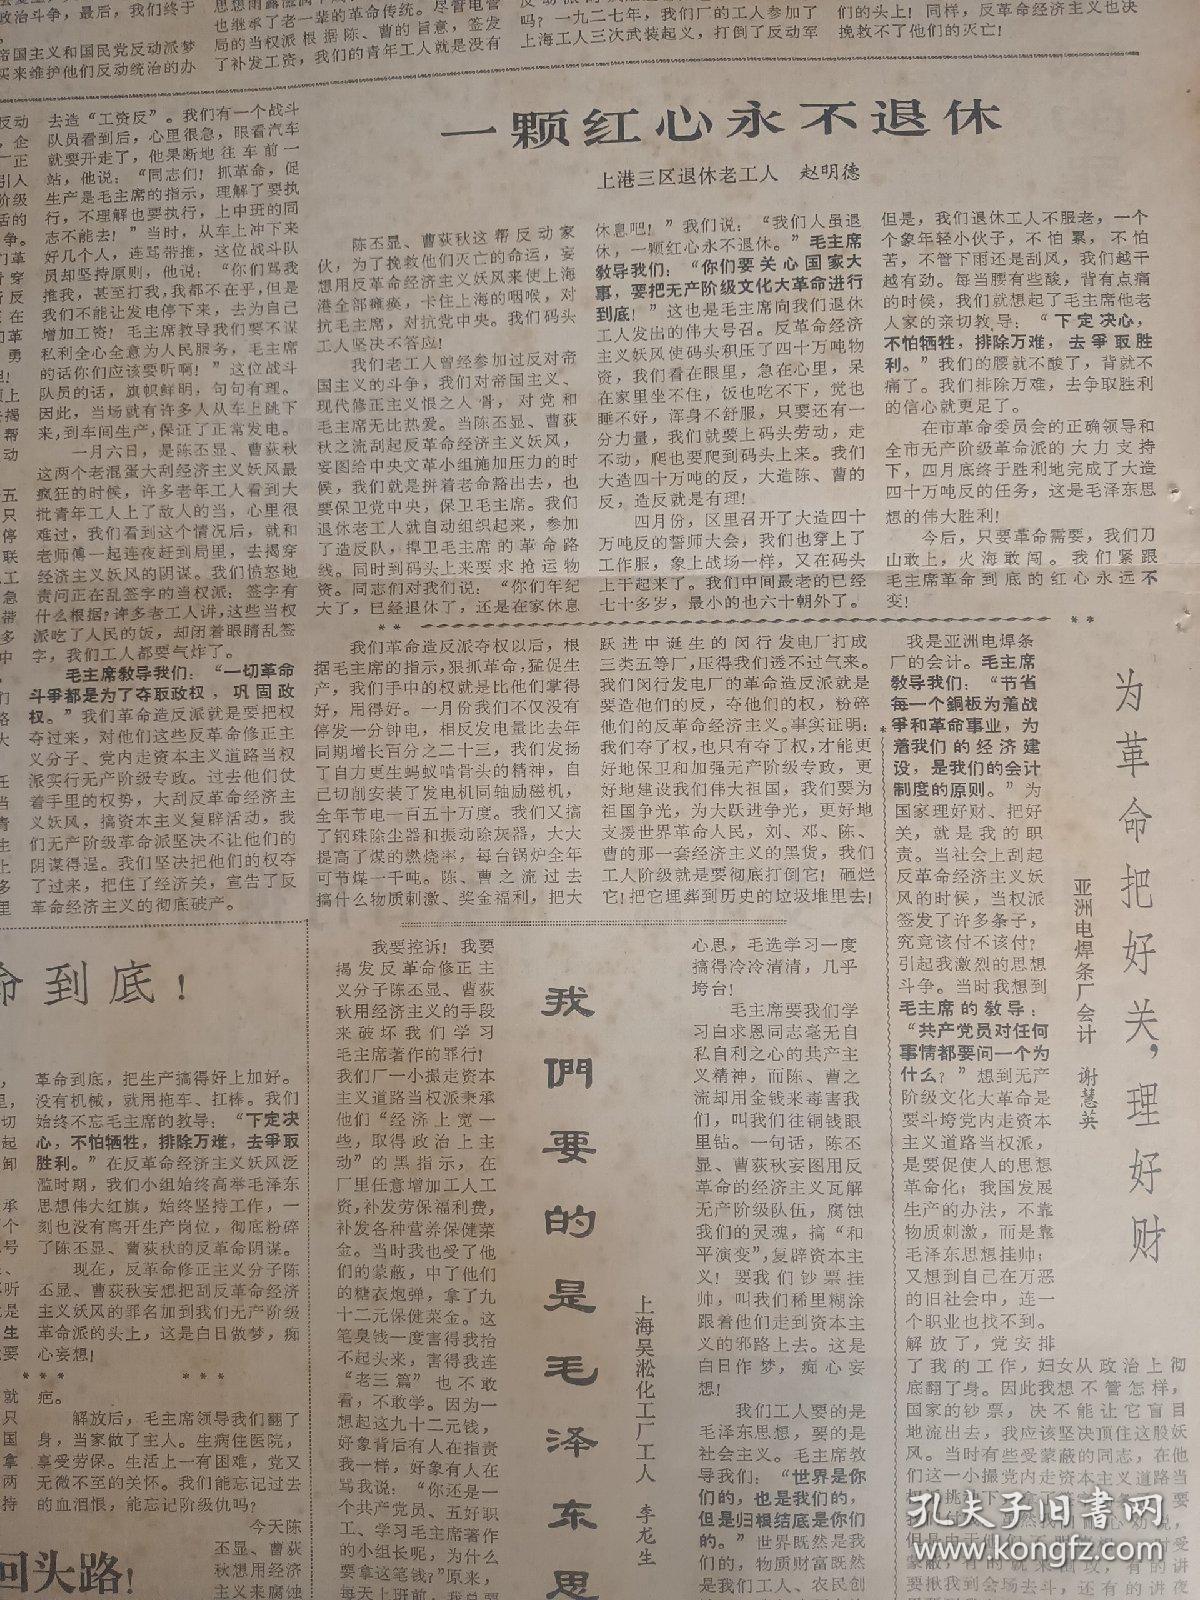 政治斗争，最后，我们终于
帝国主义和国民党反动派梦
买来维护他们反动统治的办
也继承了老一辈的革命传统。尽管电管
局的当权派根据陈、曹的旨意，签发
了补发工资，我们的青年工人就是没有
吗？一九二七年，我们厂的工人参加了
上海工人三次武装起义，打倒了反动军
们的头上！同样，反革命经济主义也决
挽救不了他们的灭亡！
去造“工资反”。我们有一个战斗
队员看到后，心里很急，眼看汽车
就要开走了，他果断地往车前一
站，他说：“同志们！抓革命，促
生产是毛主席的指示，理解了要执
行，不理解也要执行，上中班的同
志不能去！”当时，从车上冲下来
好几个人，连骂带推，这位战斗队
员却坚持原则，他说：“你们骂我
推我，甚至打我，我都不在乎，但是
我们不能让发电停下来，去为自己
增加工资！毛主席教导我们要不谋
私利全心全意为人民服务，毛主席
的话你们应该要听啊！”这位战斗
队员的话，旗帜鲜明，句句有理。
因此，当场就有许多人从车上跳下
来，到车间生产，保证了正常发电。
一月六日，是陈丕显、曹荻秋
这两个老混蛋大刮经济主义妖风最
疯狂的时候，许多老年工人看到大
批青年工人上了敌人的当，心里很
难过，我们看到这个情况后，就和
老师傅一起连夜赶到局里，去揭穿
经济主义妖风的阴谋。我们愤怒地
责问正在乱签字的当权派：签字有
什么根据？许多老工人讲，这些当权
派吃了人民的饭，却闭着眼睛乱签
字，我们工人都要气炸了。
毛主席教导我们：“一切革命
斗争都是为了夺取政权，巩固政
权。”我们革命造反派就是要把权
夺过来，对他们这些反革命修正主
义分子、党内走资本主义道路当权
派实行无产阶级专政。过去他们仗
着手里的权势，大刮反革命经济主
义妖风，搞资本主义复辟活动，我
们无产阶级革命派坚决不让他们的
阴谋得逞。我们坚决把他们的权夺
了过来，把住了经济关，宣告了反
革命经济主义的彻底破产。
一颗红心永不退休
上港三区退休老工人 赵明德
陈丕显、曹荻秋这帮反动家
伙，为了挽救他们灭亡的命运，妄
想用反革命经济主义妖风来使上海
港全部瘫痪，卡住上海的咽喉，对
抗毛主席，对抗党中央。我们码头
工人坚决不答应！
我们老工人曾经参加过反对帝
国主义的斗争，我们对帝国主义、
现代修正主义恨之入骨，对党和
毛主席无比热爱。当陈丕显、曹荻
秋之流刮起反革命经济主义妖风，
妄图给中央文革小组施加压力的时
候，我们就是拼着老命豁出去，也
要保卫党中央，保卫毛主席。我们
退休老工人就自动组织起来，参加
了造反队，捍卫毛主席的革命路
线。同时到码头上来要求抢运物
资。同志们对我们说：“你们年纪
大了，已经退休了，还是在家休息
休息吧！”我们说：“我们人虽退
休，一颗红心永不退休。”毛主席
教导我们：“你们要关心国家大
事，要把无产阶级文化大革命进行
到底！”这也是毛主席向我们退休
工人发出的伟大号召。反革命经济
主义妖风使码头积压了四十万吨物
资，我们看在眼里，急在心里，呆
在家里坐不住，饭也吃不下，觉也
睡不好，浑身不舒服，只要还有一
分力量，我们就要上码头劳动，走
不动，爬也要爬到码头上来。我们
大造四十万吨的反，大造陈、曹的
反，造反就是有理！
四月份，区里召开了大造四十
万吨反的誓师大会，我们也穿上了
工作服，象上战场一样，又在码头
上干起来了。我们中间最老的已经
七十多岁，最小的也六十朝外了。
但是，我们退休工人不服老，一个
个象年轻小伙子，不怕累，不怕
苦，不管下雨还是刮风，我们越干
越有劲。每当腰有些酸，背有点痛
的时候，我们就想起了毛主席他老
人家的亲切教导：“下定决心，
不怕牺牲，排除万难，去争取胜
利。”我们的腰就不酸了，背就不
痛了。我们排除万难，去争取胜利
的信心就更足了。
在市革命委员会的正确领导和
全市无产阶级革命派的大力支持
下，四月底终于胜利地完成了大造
四十万吨反的任务，这是毛泽东思
想的伟大胜利！
今后，只要革命需要，我们刀
山敢上，火海敢闯。我们紧跟
毛主席革命到底的红心永远不
变！
我们革命造反派夺权以后，根
据毛主席的指示，狠抓革命，猛促生
产，我们手中的权就是比他们掌得
好，用得好。一月份我们不仅没有
停发一分钟电，相反发电量比去年
同期增长百分之二十三，我们发扬
了自力更生蚂蚁啃骨头的精神，自
己切削安装了发电机同轴励磁机，
全年节电一百五十万度。我们又搞
了钢珠除尘器和振动除灰器，大大
提高了煤的燃烧率，每台锅炉全年
可节煤一千吨。陈、曹之流过去
搞什么物质刺激、奖金福利，把大
跃进中诞生的闵行发电厂打成
三类五等厂，压得我们透不过气来。
我们闵行发电厂的革命造反派就是
要造他们的反，夺他们的权，粉碎
他们的反革命经济主义。事实证明：
我们夺了权，也只有夺了权，才能更
好地保卫和加强无产阶级专政，更
好地建设我们伟大祖国，我们要为
祖国争光，为大跃进争光，更好地
支援世界革命人民，刘、邓、陈、
曹的那一套经济主义的黑货，我们
工人阶级就是要彻底打倒它！砸烂
它！把它埋葬到历史的垃圾堆里去！
为革命把好关，理好财
亚洲电焊条厂会计 谢慧英
我是亚洲电焊条
厂的会计。毛主席
教导我们：“节省
每一个銅板为着战
争和革命事业，为
着我们的经济建
设，是我们的会计
制度的原则。”为
国家理好财、把好
关，就是我的职
责。当社会上刮起
反革命经济主义妖
风的时候，当权派
签发了许多条子，
究竟该付不该付？
引起我激烈的思想
斗争。当时我想到
毛主席的教导：
“共产党员对任何
事情都要问一个为
什么？”想到无产
阶级文化大革命是
要斗垮党内走资本
主义道路当权派，
是要促使人的思想
革命化；我国发展
生产的办法，不靠
物质刺激，而是靠
毛泽东思想挂帅；
又想到自己在万恶
的旧社会中，连一
个职业也找不到。
解放了，党安排
了我的工作，妇女从政治上彻
底翻了身。因此我想不管怎样，
国家的钞票，决不能让它盲目
地流出去，我应该坚决顶住这股妖
风。当时有些受蒙蔽的同志，在他
们这一小撮党内走资本主义道路当
要揪我到会场去斗，还有的讲夜
我們要的是毛泽东思
上海吴淞化工厂工人 李龙生
我要控诉！我要
揭发反革命修正主
义分子陈丕显、曹荻
秋用经济主义的手段
来破坏我们学习
毛主席著作的罪行！
我们厂一小撮走资本
主义道路当权派秉承
他们“经济上宽一
些，取得政治上主
动”的黑指示，在
厂里任意增加工人工
资，补发劳保福利费，
补发各种营养保健菜
金。当时我也受了他
们的蒙蔽，中了他们
的糖衣炮弹，拿了九
十二元保健菜金。这
笔臭钱一度害得我抬
不起头来，害得我连
“老三篇”也不敢
看，不敢学。因为一
想起这九十二元钱，
好象背后有人在指责
我一样，好象有人在
骂我说：“你还是一
个共产党员、五好职
工、学习毛主席著作
的小组长呢，为什么
要拿这笔钱？”原来，
每天上班前，我总要
心思，毛选学习一度
搞得冷冷清清，几乎
垮台！
毛主席要我们学
习白求恩同志毫无自
私自利之心的共产主
义精神，而陈、曹之
流却用金钱来毒害我
们，叫我们往铜钱眼
里钻。一句话，陈丕
显、曹荻秋妄图用反
革命的经济主义瓦解
无产阶级队伍，腐蚀
我们的灵魂，搞“和
平演变”，复辟资本主
义！要我们钞票挂
帅，叫我们稀里糊涂
跟着他们走到资本主
义的邪路上去。这是
白日作梦，痴心妄
想！
我们工人要的是
毛泽东思想，要的是
社会主义。毛主席教
导我们：“世界是你
们的，也是我们的，
但是归根结底是你们
的。”世界既然是我
们的，物质财富既然
是我们工人、农民创
命到底！
革命到底，把生产搞得好上加好。
没有机械，就用拖车、扛棒。我们
始终不忘毛主席的教导：“下定决
心，不怕牺牲，排除万难，去争取
胜利。”在反革命经济主义妖风泛
滥时期，我们小组始终高举毛泽东
思想伟大红旗，始终坚持工作，一
刻也没有离开生产岗位，彻底粉碎
了陈丕显、曹荻秋的反革命阴谋。
现在，反革命修正主义分子陈
丕显、曹荻秋妄想把刮反革命经济
主义妖风的罪名加到我们无产阶级
革命派的头上，这是白日做梦，痴
心妄想！
疤。
解放后，毛主席领导我们翻了
身，当家做了主人。生病住医院，
享受劳保。生活上一有困难，党又
无微不至的关怀。我们能忘记过去
的血泪恨，能忘记阶级仇吗？
今天陈
丕显、曹荻
秋想用经济
主义来腐蚀
回头路！
孔夫子旧书网
www.kongfz.com